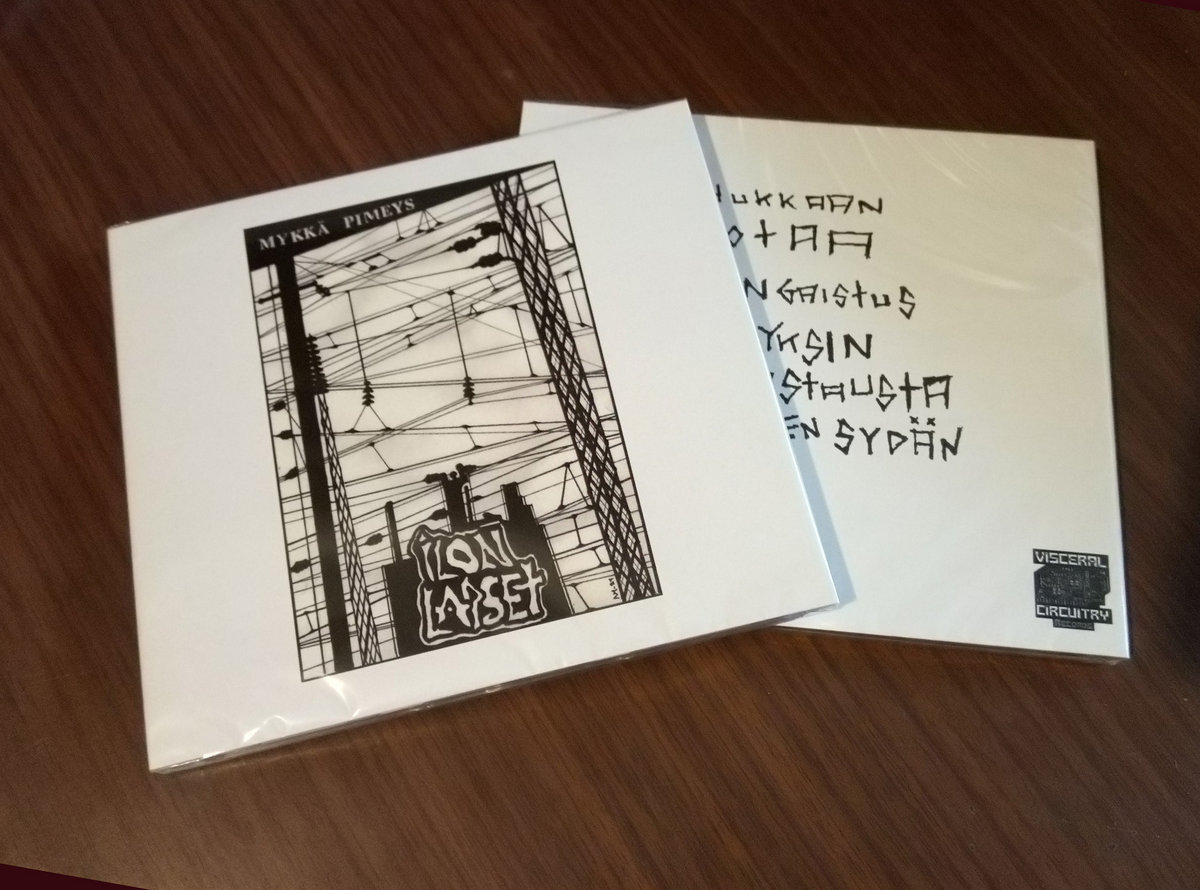 MYKKÄ PIMEYS
ILON
LAPSET
UKKAAN
OTAA
NGAISTUS
YKSIN
STAUSTA
EN SYDÄN
VISCERAL
CIRCUITRY
RECORDS